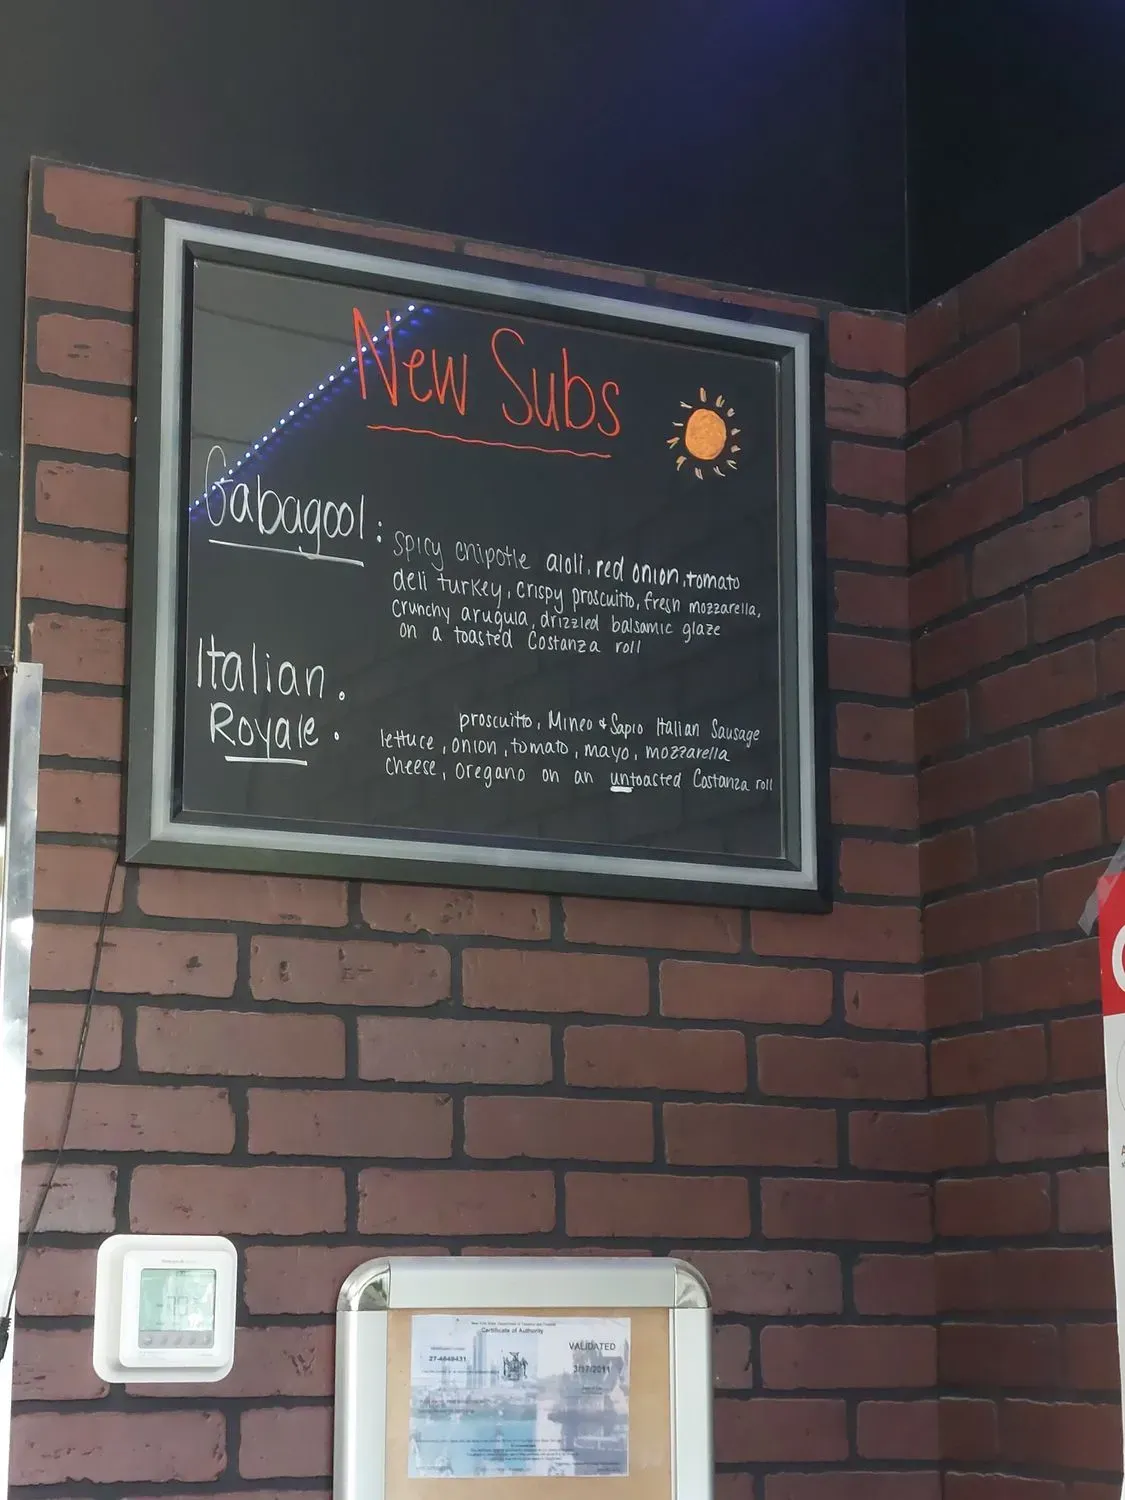 New Subs
Gabagool:
spicy chipotle aioli, red onion, tomato
deli turkey, crispy proscuitto, fresh mozzarella,
crunchy arugula, drizzled balsamic glaze
on a toasted Costanza roll
Italian.
Royale.
proscuitto, Mineo & Sapio Italian Sausage
lettuce, onion, tomato, mayo, mozzarella
cheese, oregano on an untoasted Costanza roll
New York State Department of Taxation and Finance
Certificate of Authority
VALIDATED
3/17/2011